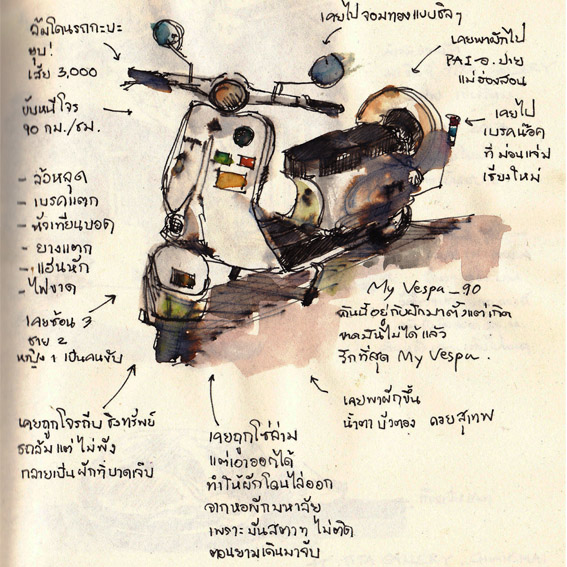 ล้มโดนรถกะบะ
ทุบ!
เสีย 3,000
ขับหนีโจร
90 กม./ชม.
เคยไปจอมทองแบบชิลๆ
เคยพาผักไป
PAI-อ.ปาย
แม่ฮ่องสอน
เคยไป
เบรคน๊อค
ที่ ม่อนแจ่ม
เชียงใหม่
- ล้อหลุด
- เบรคแตก
- หัวเทียนบอด
- ยางแตก
- แฮนหัก
- ไฟขาด
เคยซ้อน 3
ชาย 2
หญิง 1 เป็นคนขับ
My Vespa_90
คันนี้อยู่กับผักมาตั้งแต่เกิด
ขาดมันไม่ได้แล้ว
รักที่สุด My Vespa.
เคยพาผักขึ้น
น้ำตก บัวตอง ดอยสุเทพ
เคยถูกโจรถีบ ชิงทรัพย์
รถล้มแต่ ไม่พัง
กลายเป็นผักที่บาดเจ็บ
เคยถูกโซ่ล่าม
แต่เอาออกได้
ทำให้ผักโดนไล่ออก
จากหอพักมหาลัย
เพราะ มันสตาท ไม่ติด
ตอนยามเดินมาจับ